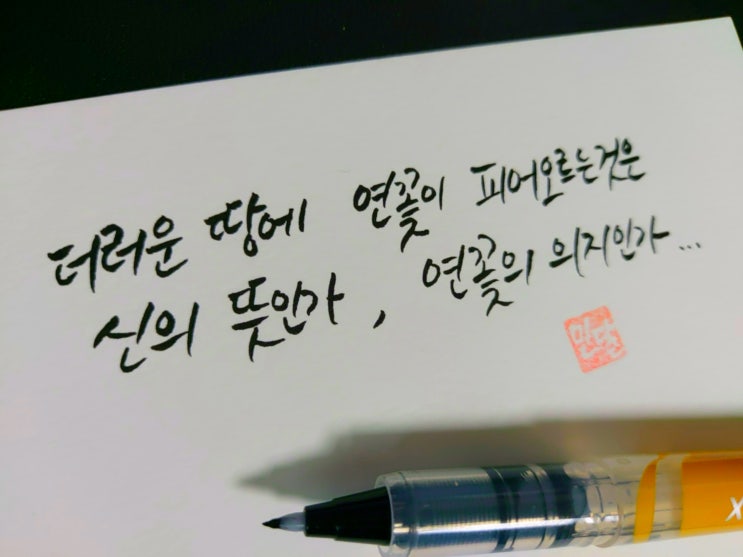 더러운 땅에 연꽃이 피어오르는것은
신의 뜻인가, 연꽃의 의지인가...